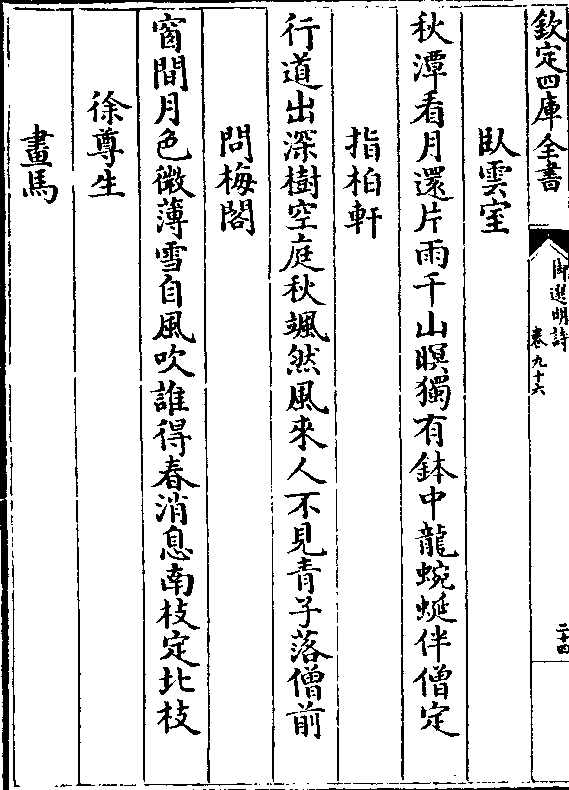 欽定四庫全書
御選明詩
卷九十六
二十四
臥雲室
秋潭看月還片雨千山暝獨有鉢中龍蜿蜒伴僧定
指柏軒
行道出深樹空庭秋颯然風來人不見青子落僧前
問梅閣
窗間月色微薄雪自風吹誰得春消息南枝定北枝
徐尊生
畫馬